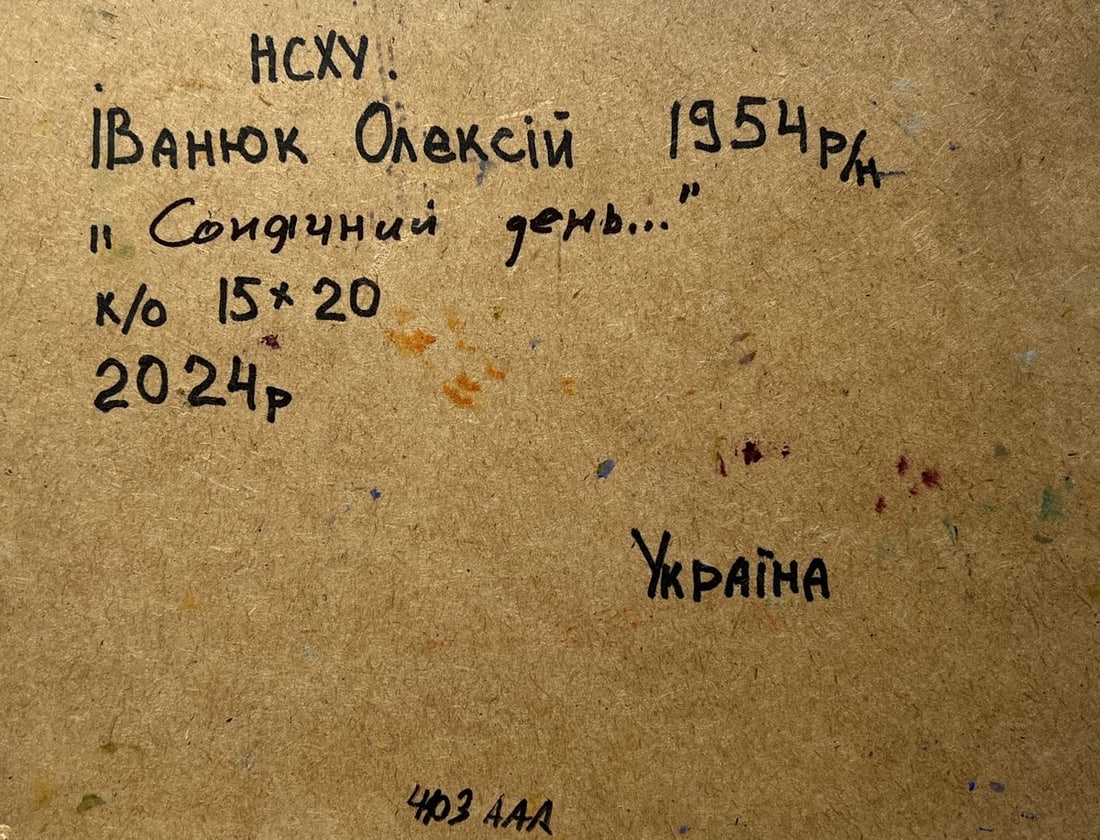 НСХУ.
Іванюк Олексій 1954 р/н
„Сонячний день..."
к/о 15×20
2024р
Україна
403 ААА